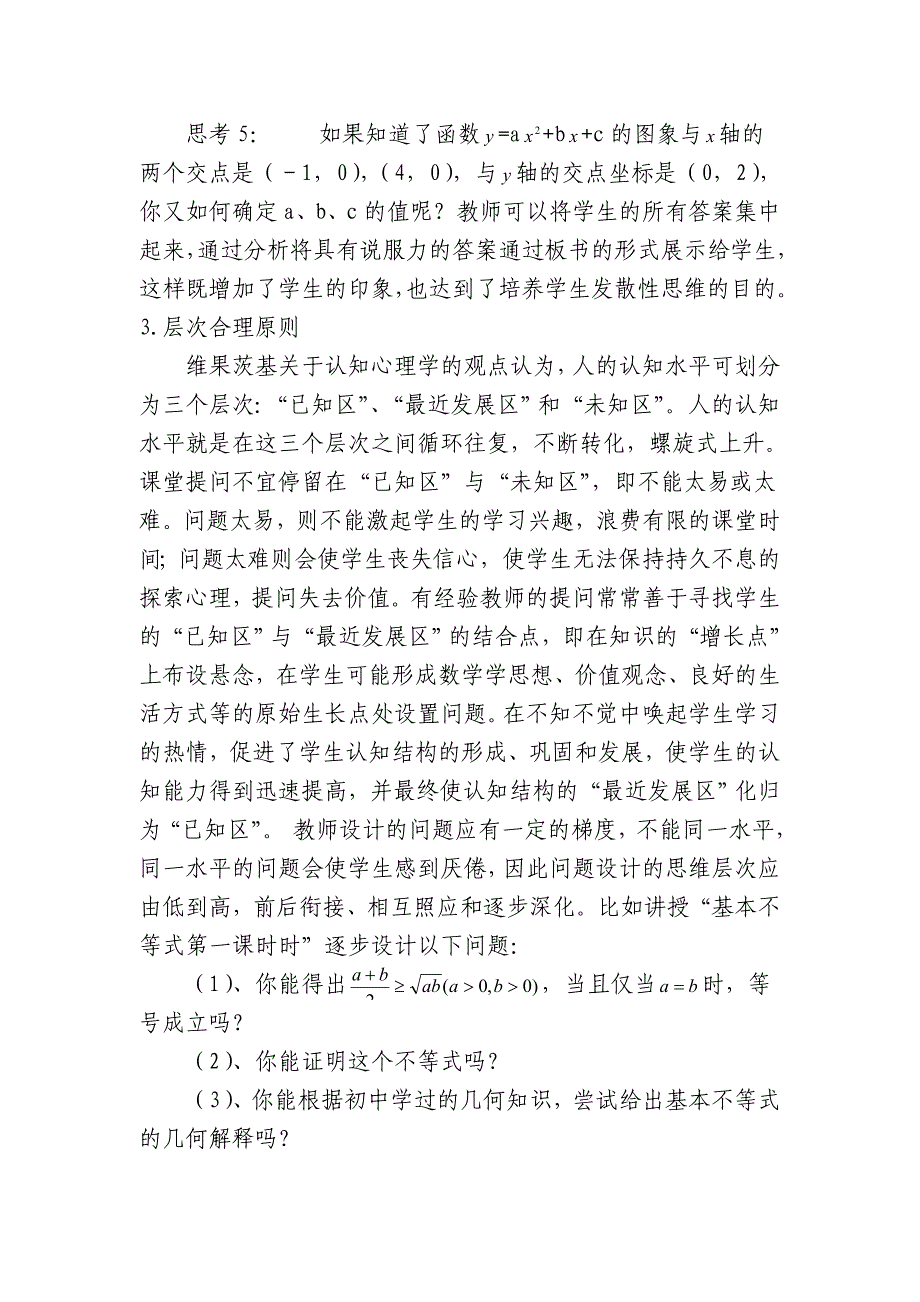 思考5： 如果知道了函数y=ax²+bx+c的图象与x轴的
两个交点是（-1，0），（4，0），与y轴的交点坐标是（0，2），
你又如何确定a、b、c的值呢？教师可以将学生的所有答案集中
起来，通过分析将具有说服力的答案通过板书的形式展示给学生，
这样既增加了学生的印象，也达到了培养学生发散性思维的目的。
3.层次合理原则
维果茨基关于认知心理学的观点认为，人的认知水平可划分
为三个层次：“已知区”、“最近发展区”和“未知区”。人的认知
水平就是在这三个层次之间循环往复，不断转化，螺旋式上升。
课堂提问不宜停留在“已知区”与“未知区”，即不能太易或太
难。问题太易，则不能激起学生的学习兴趣，浪费有限的课堂时
间；问题太难则会使学生丧失信心，使学生无法保持持久不息的
探索心理，提问失去价值。有经验教师的提问常常善于寻找学生
的“已知区”与“最近发展区”的结合点，即在知识的“增长点”
上布设悬念，在学生可能形成数学学思想、价值观念、良好的生
活方式等的原始生长点处设置问题。在不知不觉中唤起学生学习
的热情，促进了学生认知结构的形成、巩固和发展，使学生的认
知能力得到迅速提高，并最终使认知结构的“最近发展区”化归
为“已知区”。 教师设计的问题应有一定的梯度，不能同一水平，
同一水平的问题会使学生感到厌倦，因此问题设计的思维层次应
由低到高，前后衔接、相互照应和逐步深化。比如讲授“基本不
等式第一课时时”逐步设计以下问题：
（1）、你能得出(a+b)/2≥√ab(a>0,b>0)，当且仅当a=b时，等
号成立吗？
（2）、你能证明这个不等式吗？
（3）、你能根据初中学过的几何知识，尝试给出基本不等式
的几何解释吗？